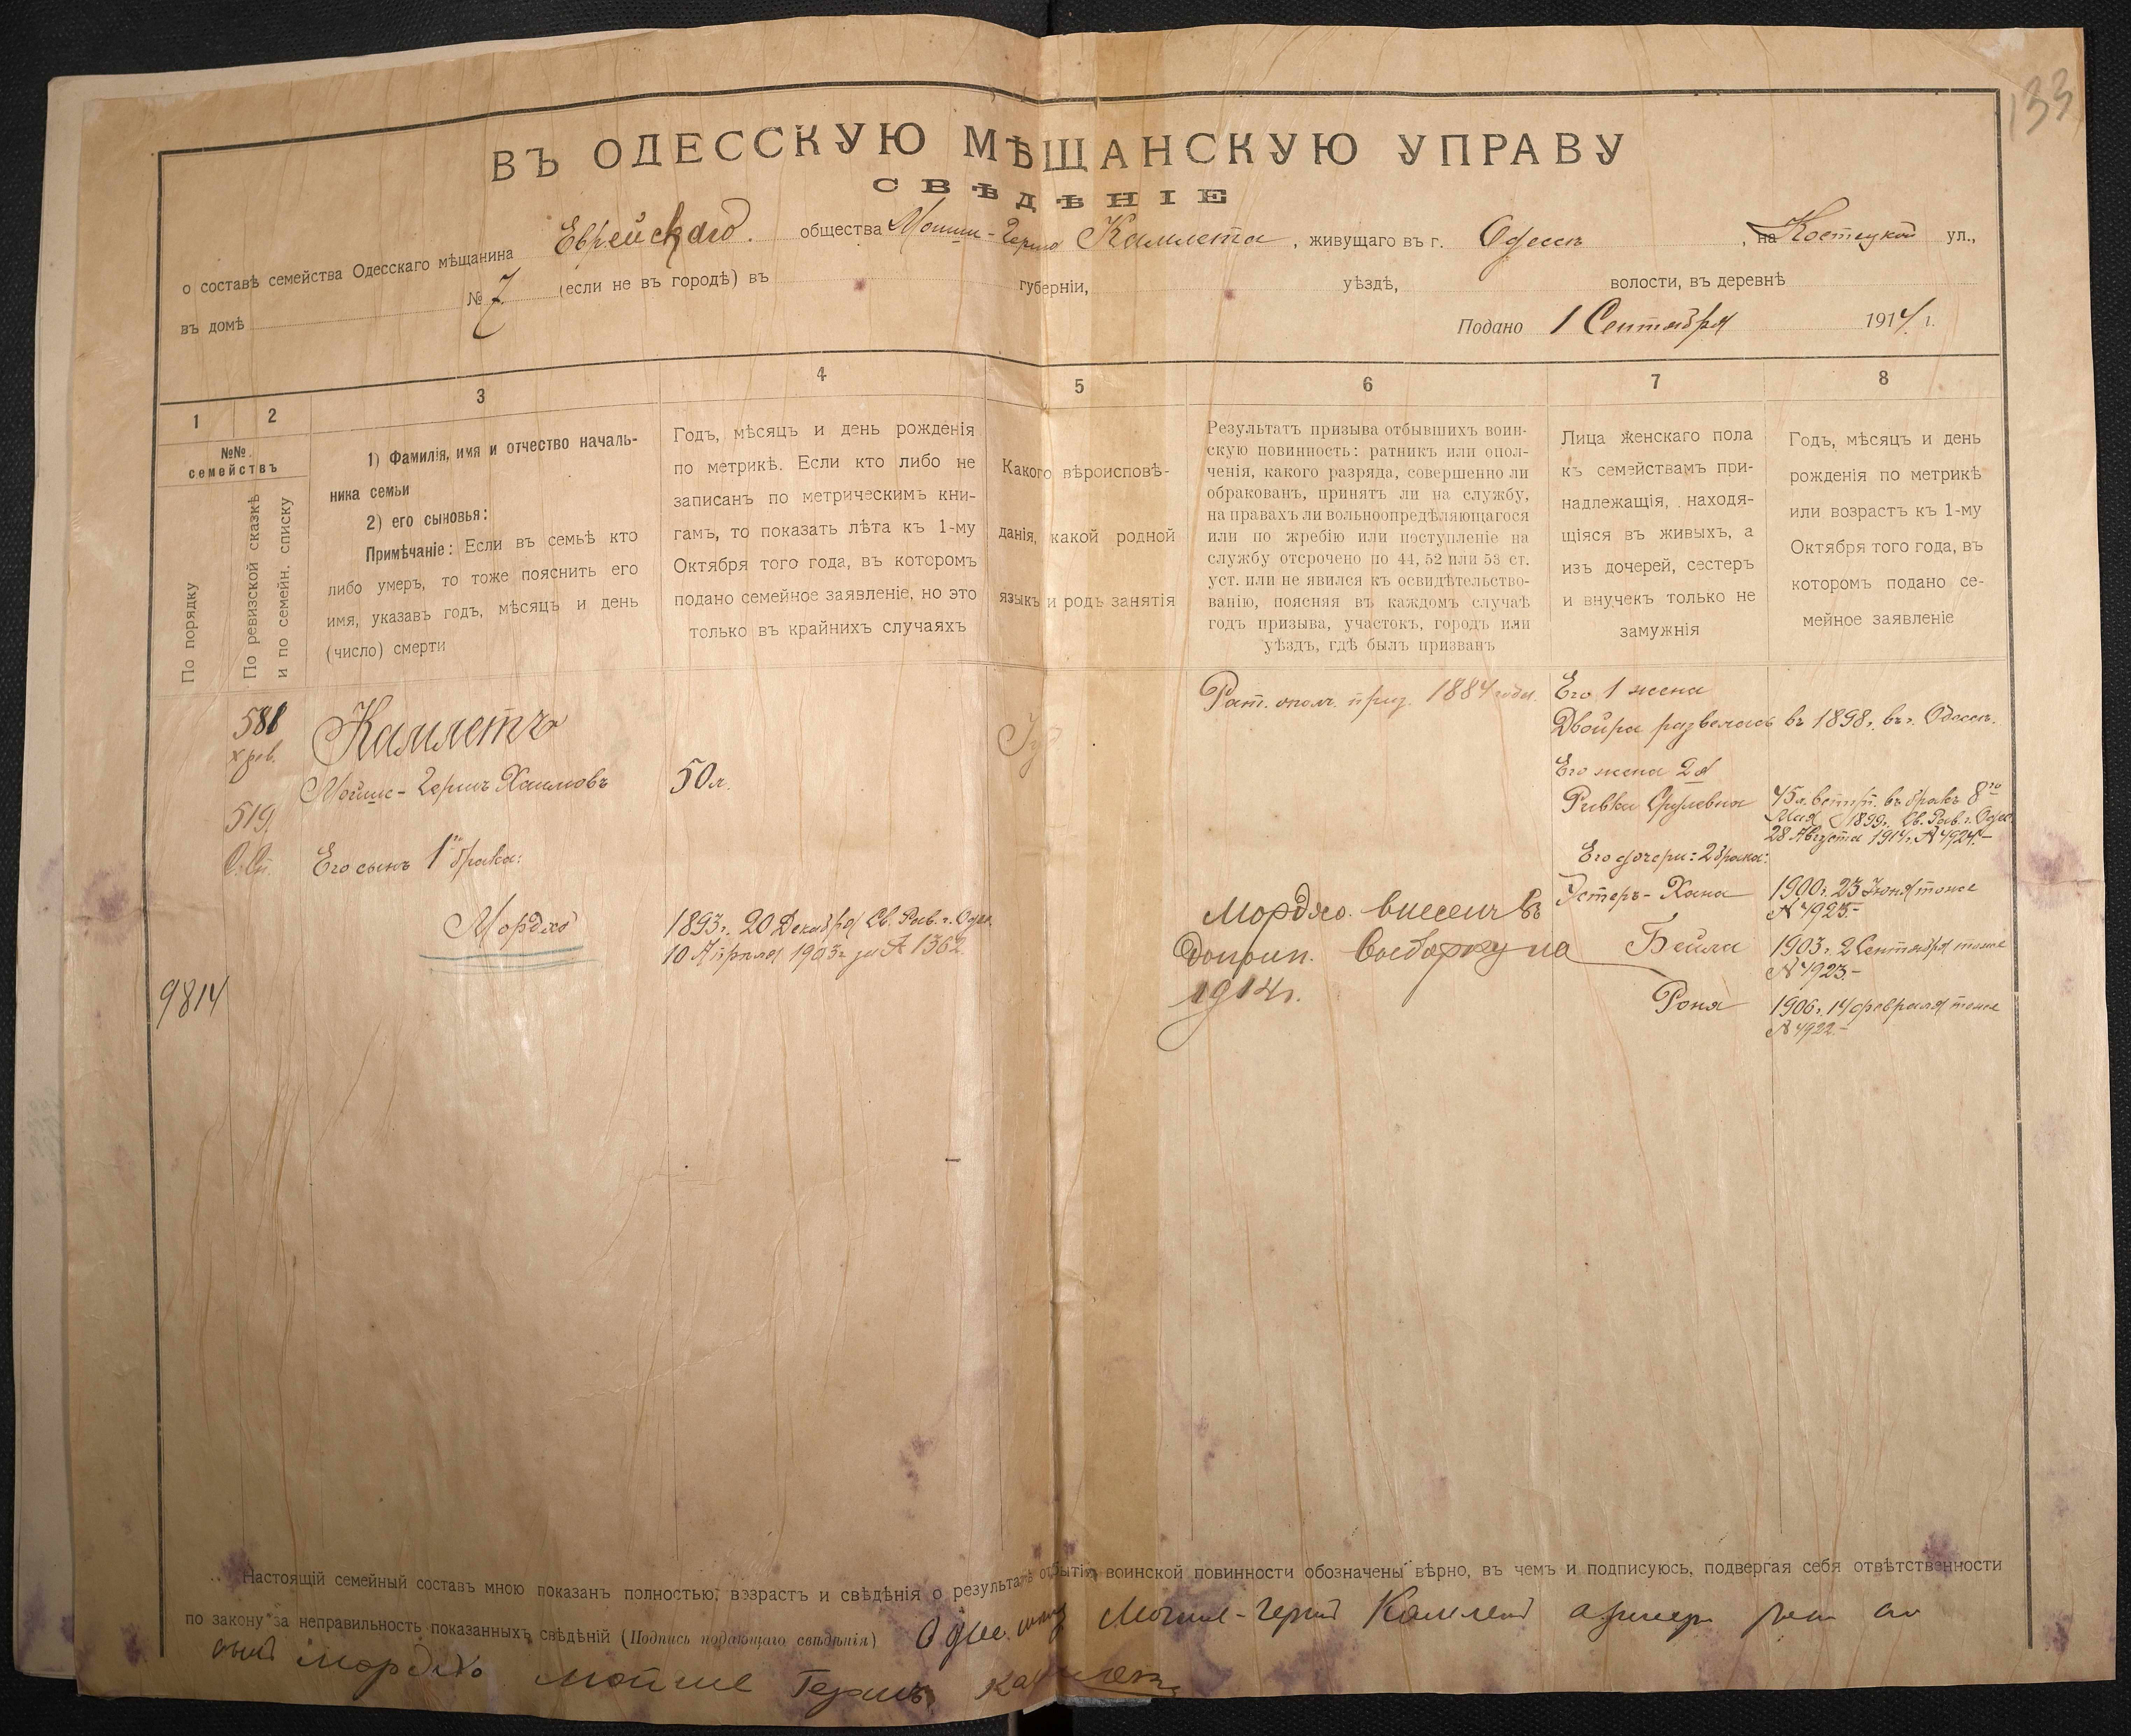 133
ВЪ ОДЕССКУЮ МѢЩАНСКУЮ УПРАВУ
СВѢДѢНІЕ
о составѣ семейства Одесскаго мѣщанина Еврейскаго общества Мошки-Герша Камлета, живущаго въ г. Одессѣ, на Костецкой ул.,
въ домѣ № 7 (если не въ городѣ) въ губерніи, уѣздѣ, волости, въ деревнѣ
Подано 1 Сентября 1914 г.
1 2 3 4 5 6 7 8
№№ семействъ
По порядку
По ревизской сказкѣ
и по семейн. списку
1) Фамилія, имя и отчество началь-
ника семьи
2) его сыновья:
Примѣчаніе: Если въ семьѣ кто
либо умеръ, то тоже пояснить его
имя, указавъ годъ, мѣсяцъ и день
(число) смерти
Годъ, мѣсяцъ и день рожденія
по метрикѣ. Если кто либо не
записанъ по метрическимъ кни-
гамъ, то показать лѣта къ 1-му
Октября того года, въ которомъ
подано семейное заявленіе, но это
только въ крайнихъ случаяхъ
Какого вѣроисповѣ-
данія, какой родной
языкъ и родъ занятія
Результатъ призыва отбывшихъ воин-
скую повинность: ратникъ или опол-
ченія, какого разряда, совершенно ли
обракованъ, принятъ ли на службу,
на правахъ ли вольноопредѣляющагося
или по жребію или поступленіе на
службу отсрочено по 44, 52 или 53 ст.
уст. или не явился къ освидѣтельство-
ванію, поясняя въ каждомъ случаѣ
годъ призыва, участокъ, городъ или
уѣздъ, гдѣ былъ призванъ
Лица женскаго пола
къ семействамъ при-
надлежащія, находя-
щіяся въ живыхъ, а
изъ дочерей, сестеръ
и внучекъ только не
замужнія
Годъ, мѣсяцъ и день
рожденія по метрикѣ
или возрастъ къ 1-му
Октября того года, въ
котоомъ подано се-
мейное заявленіе
588
х рев.
519
С. Сп.
9814
Камлетъ
Мойше-Гершъ Хаимовъ
Его сынъ 1го брака:
Мордхо
50 л.
1893 г. 20 Декабря Св. Рав. г. Одес.
10 Апрѣля 1903 г. за № 1362.
Іуд
Рат. опол. приз. 1884 года.
Мордхо. внесенъ въ
допри. выборку на
1914 г.
Его 1 жена
Двойра развелась въ 1898 г. въ г. Одессѣ.
Его жена 2я
Ривка Срулевна
45 л. вступ. въ бракъ 8го
Мая 1899 г. Св. Рав. г. Одес.
28 Августа 1914 г. № 4924.-
Его дочери: 2 брака:
Эстеръ-Хана
1900 г. 23 Іюня тоже
№ 4925.-
Бейла
1903 г. 2 Сентября тоже
№ 4923.-
Роня
1906 г. 14 февраля тоже
№ 4922.-
Настоящій семейный составъ мною показанъ полностью, возрастъ и свѣдѣнія о результатѣ отбытія воинской повинности обозначены вѣрно, въ чемъ и подписуюсь, подвергая себя отвѣтственности
по закону за неправильность показанныхъ свѣдѣній (Подпись подающаго свѣдѣнія) Одес. Мошке-Герш Камлет
сын Мордхо Мойше Гершъ Камлетъ